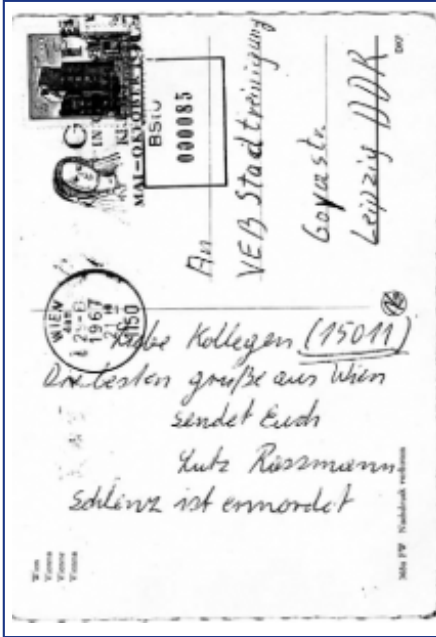 MAI-OKTOBER
BStU
000085
WIEN
1967
1150
An
VEB Stadtreinigung
Goyastr.
Leipzig DDR
Liebe Kollegen (15011)
Die besten grüße aus Wien
sendet Euch
Lutz Rossmann
Schlenz ist ermordet
Wien
Vienna
Vienne
Vienna
PW Nachdruck verboten